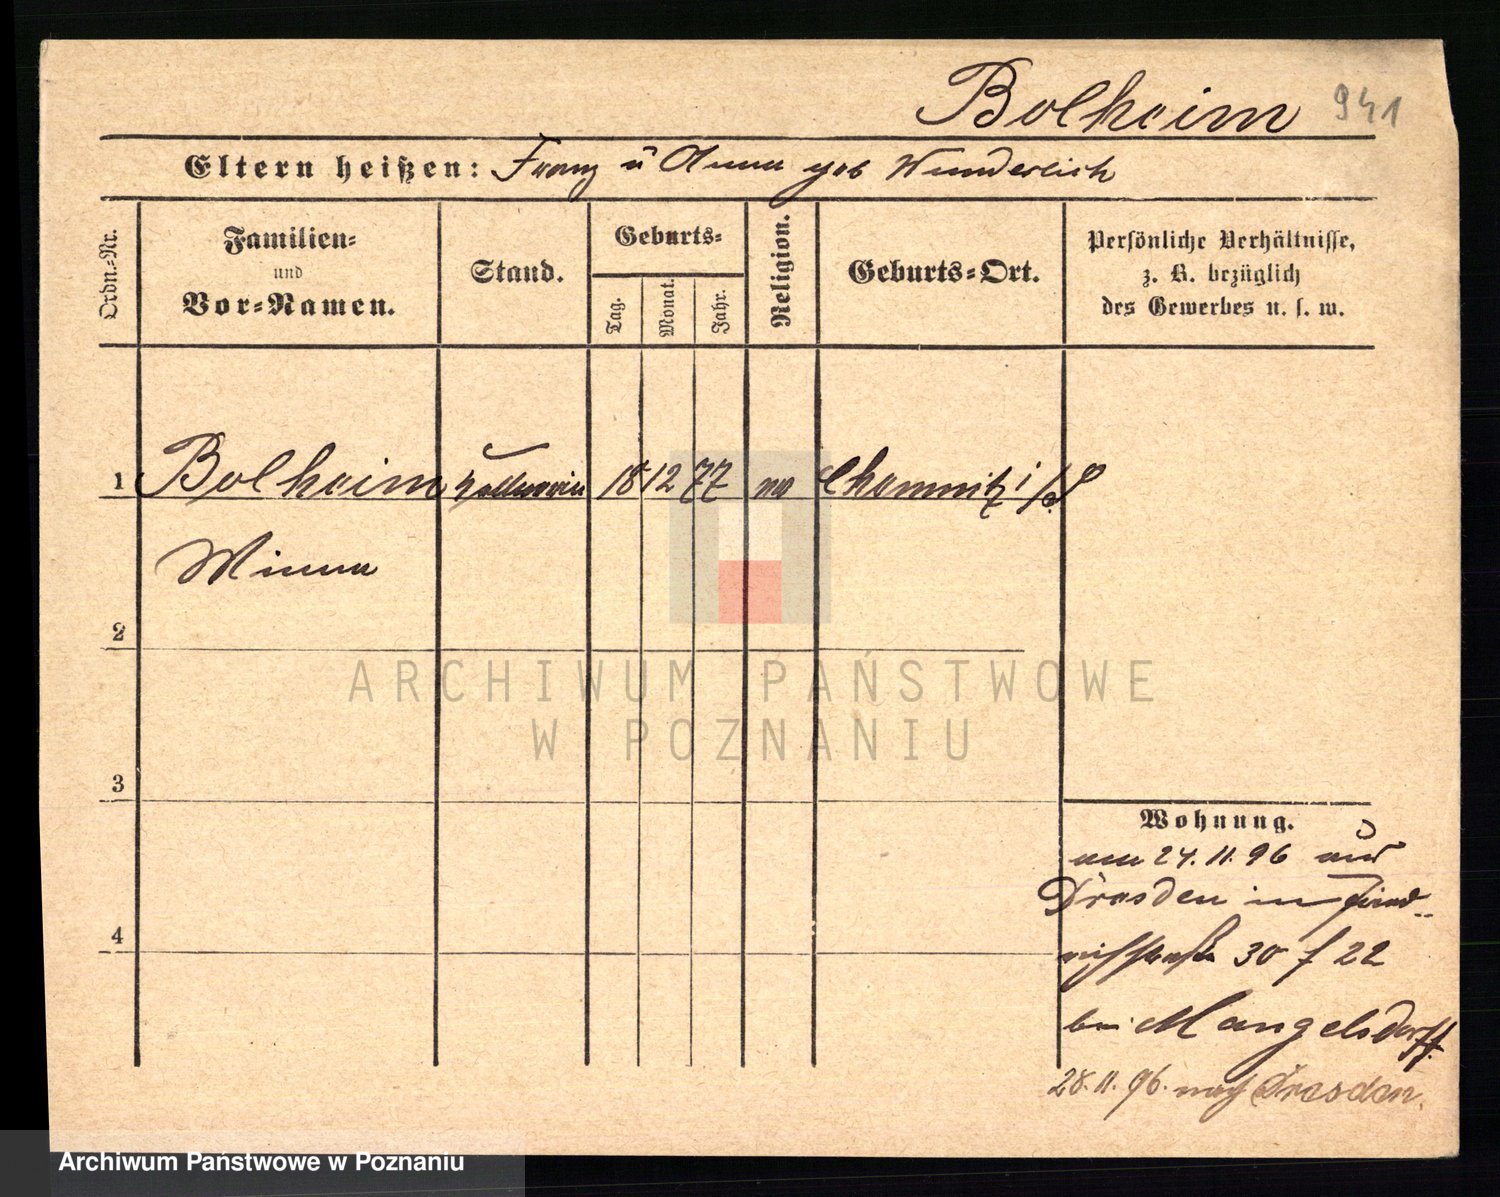 Bolheim 941
Eltern heißen: Franz u Anna geb Wunderlich
Ordn.-Nr.
Familien-
und
Vor-Namen.
Stand.
Geburts-
Tag.
Monat.
Jahr.
Religion.
Geburts-Ort.
Persönliche Verhältnisse,
z. B. bezüglich
des Gewerbes u. s. w.
1 Bolheim Kellnerin 18 12 77 ev Chemnitz i/S
Minna
2
3
4
Wohnung.
am 24.11.96 aus
Dresden in Fried-
richstraße 30 f 22
bei Mangelsdorff.
28.11.96. nach Dresden.
ARCHIWUM PAŃSTWOWE
W POZNANIU
Archiwum Państwowe w Poznaniu